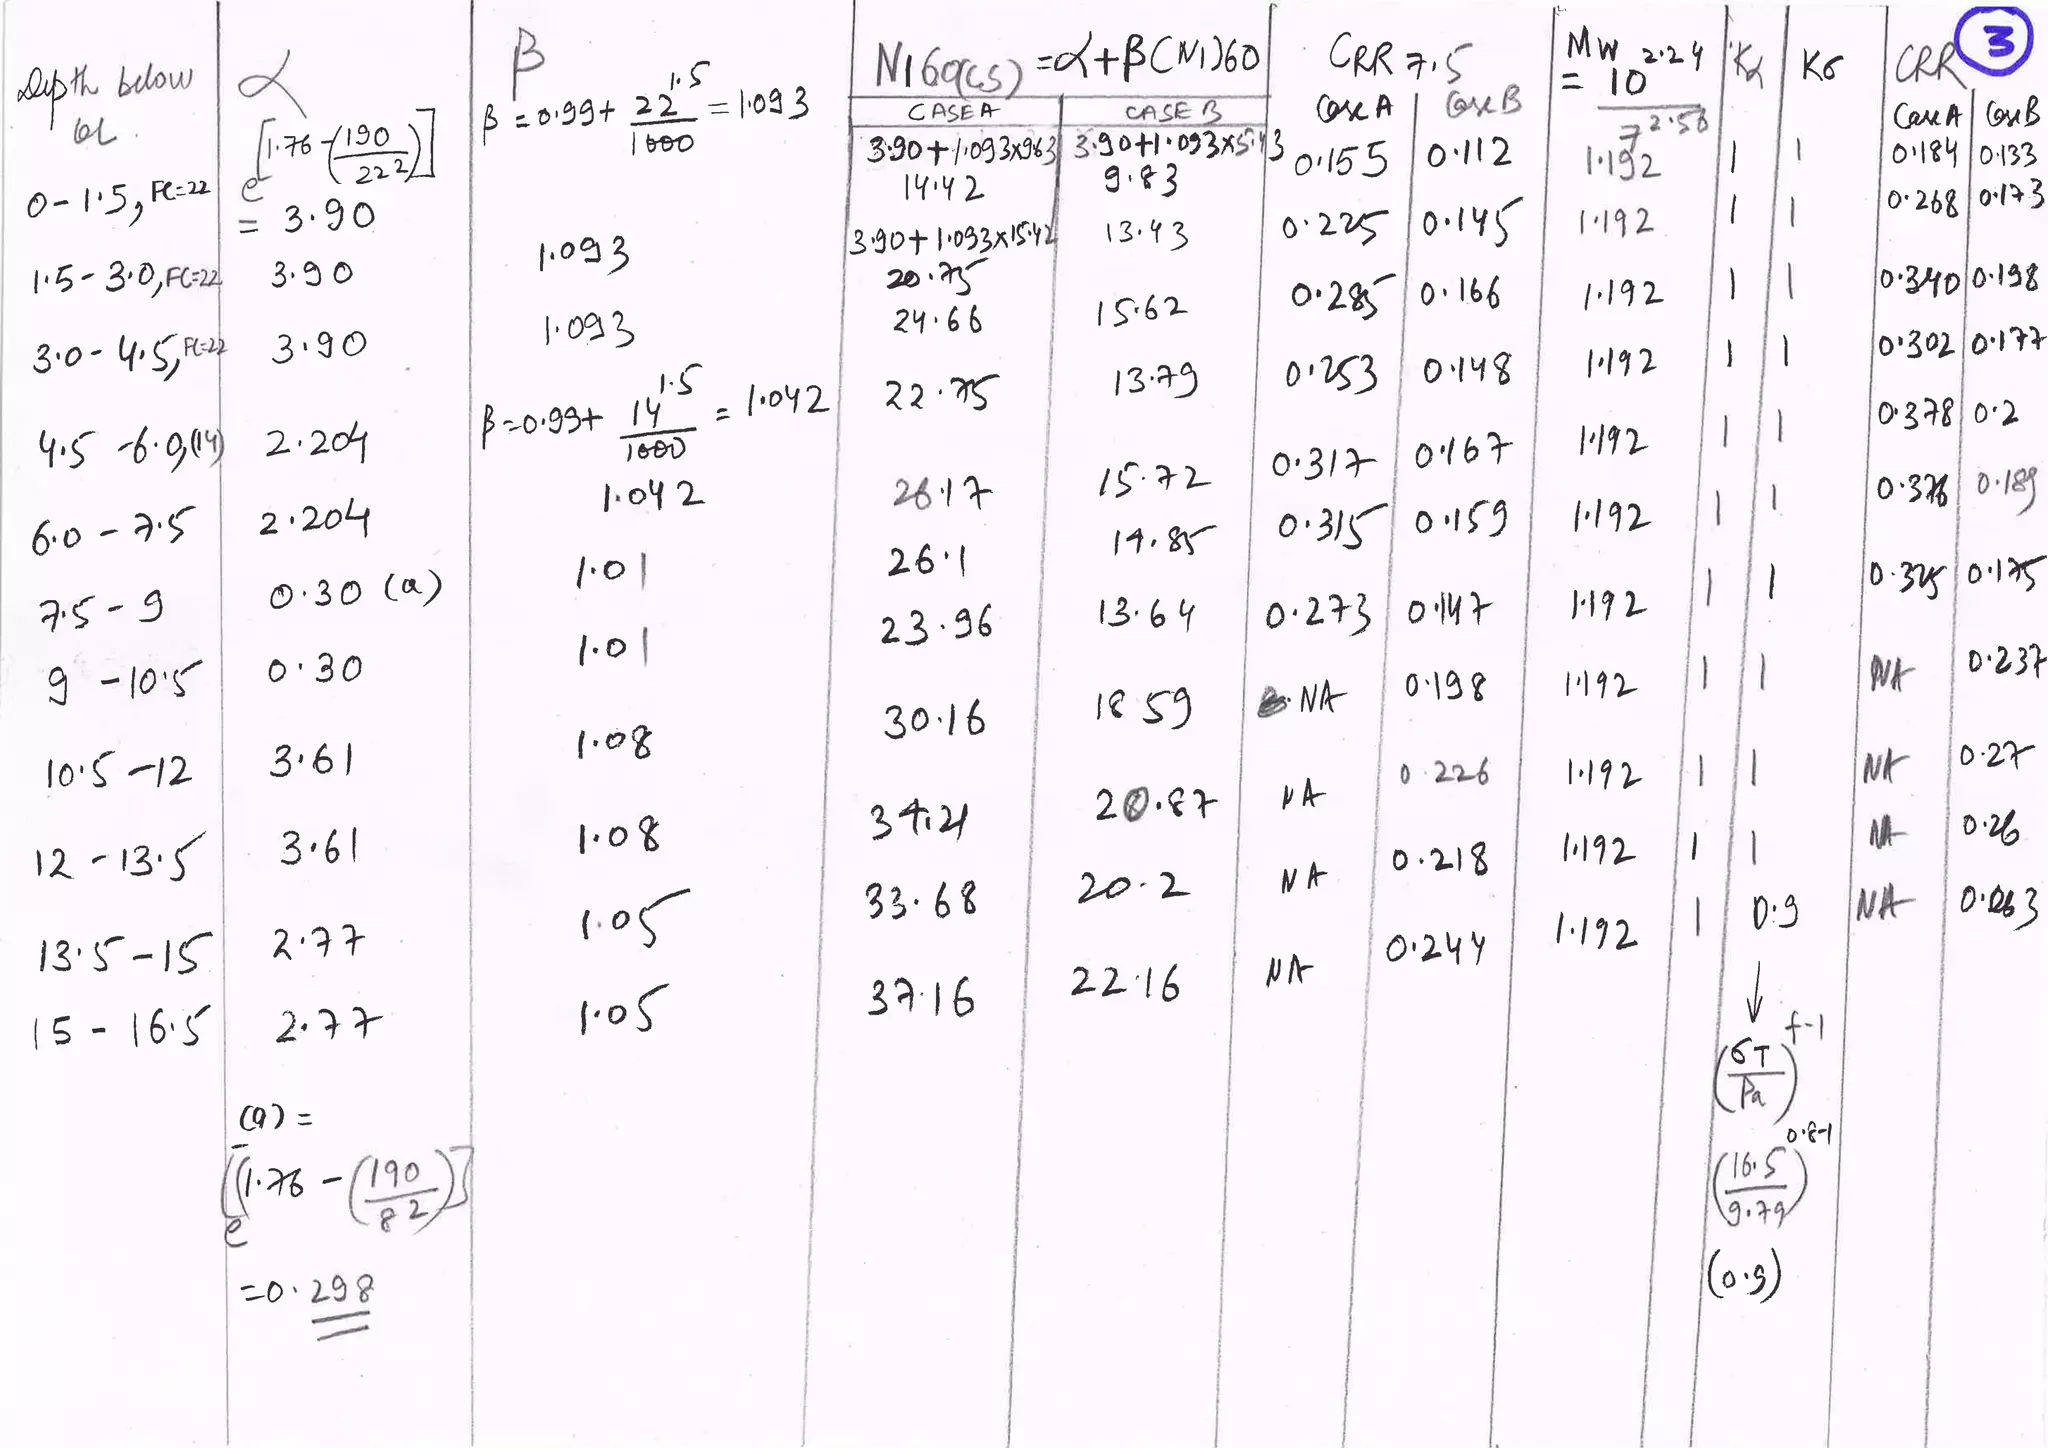 3
Depth below GL.
α
β
N160(cs) = α+β(N1)60
CRR 7.5
MW = 10^2.24 / 7^2.56
Kα
Kσ
CRR
CASE A CASE B
Case A Case B
Case A Case B
0-1.5, FC=22 e^[1.76-(190/22²)] = 3.90 β = 0.99+ 22^1.5/1000 = 1.093 3.90+1.093x9.63 14.42 3.90+1.093x5.43 9.83 0.155 0.112 1.192 1 1 0.184 0.133
1.5-3.0, FC=22 3.90 1.093 3.90+1.093x15.42 20.75 13.43 0.225 0.145 1.192 1 1 0.268 0.173
3.0-4.5, FC=22 3.90 1.093 24.66 15.62 0.285 0.166 1.192 1 1 0.340 0.198
4.5-6.0, (14) 2.204 β=0.99+ 14^1.5/1000 = 1.042 22.75 13.79 0.253 0.148 1.192 1 1 0.302 0.177
6.0-7.5 2.204 1.042 26.17 15.72 0.317 0.167 1.192 1 1 0.378 0.2
7.5-9 0.30 (a) 1.01 26.1 14.85 0.315 0.159 1.192 1 1 0.376 0.189
9-10.5 0.30 1.01 23.96 13.64 0.273 0.147 1.192 1 1 0.325 0.175
10.5-12 3.61 1.08 30.16 18.59 NA 0.198 1.192 1 1 NA 0.237
12-13.5 3.61 1.08 34.21 20.87 NA 0.226 1.192 1 1 NA 0.27
13.5-15 2.77 1.05 33.68 20.2 NA 0.218 1.192 1 1 NA 0.26
15-16.5 2.77 1.05 37.16 22.16 NA 0.244 1.192 1 0.9 NA
(a) =
e^[1.76-(190/8²)]
=0.298
(σT/Pa)^f-1
(16.5/9.79)^0.8-1
(0.9)